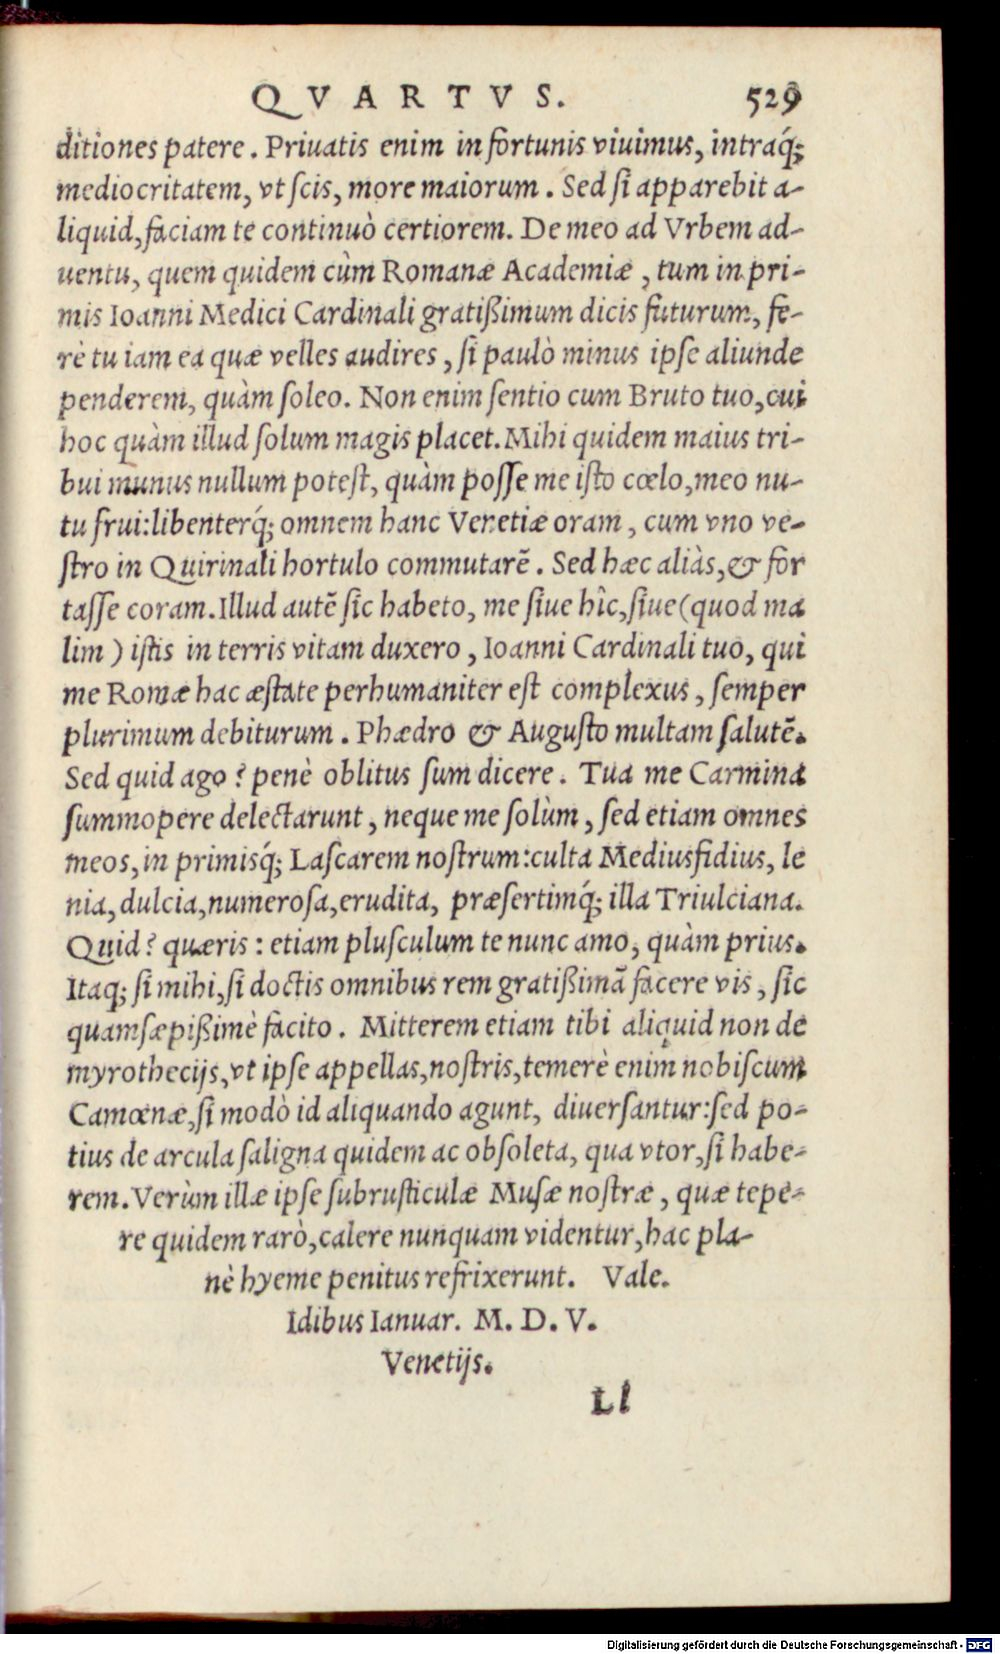 QVARTVS. 529
ditiones patere. Priuatis enim in fortunis viuimus, intraq́;
mediocritatem, vt scis, more maiorum. Sed si apparebit a-
liquid, faciam te continuò certiorem. De meo ad Vrbem ad-
uentu, quem quidem cùm Romanæ Academiæ, tum in pri-
mis Ioanni Medici Cardinali gratißimum dicis futurum, fe-
rè tu iam ea quæ velles audires, si paulò minus ipse aliunde
penderem, quàm soleo. Non enim sentio cum Bruto tuo, cui
hoc quàm illud solum magis placet. Mihi quidem maius tri-
bui munus nullum potest, quàm posse me isto cœlo, meo nu-
tu frui: libenterq́; omnem hanc Venetiæ oram, cum vno ve-
stro in Quirinali hortulo commutarẽ. Sed hæc aliàs, & for
tasse coram. Illud autẽ sic habeto, me siue hîc, siue (quod ma
lim) istis in terris vitam duxero, Ioanni Cardinali tuo, qui
me Romæ hac æstate perhumaniter est complexus, semper
plurimum debiturum. Phædro & Augusto multam salutẽ.
Sed quid ago? penè oblitus sum dicere. Tua me Carmina
summopere delectarunt, neque me solùm, sed etiam omnes
meos, in primisq́; Lascarem nostrum: culta Mediusfidius, le
nia, dulcia, numerosa, erudita, præsertimq́; illa Triulciana.
Quid? quæris: etiam plusculum te nunc amo, quàm prius.
Itaq; si mihi, si doctis omnibus rem gratißimã facere vis, sic
quamsæpißimè facito. Mitterem etiam tibi aliquid non de
myrothecijs, vt ipse appellas, nostris, temerè enim nobiscum
Camœnæ, si modò id aliquando agunt, diuersantur: sed po-
tius de arcula saligna quidem ac obsoleta, qua vtor, si habe-
rem. Verùm illæ ipse subrusticulæ Musæ nostræ, quæ tepe-
re quidem rarò, calere nunquam videntur, hac pla-
nè hyeme penitus refrixerunt. Vale.
Idibus Ianuar. M. D. V.
Venetijs.
Ll
Digitalisierung gefördert durch die Deutsche Forschungsgemeinschaft - DFG